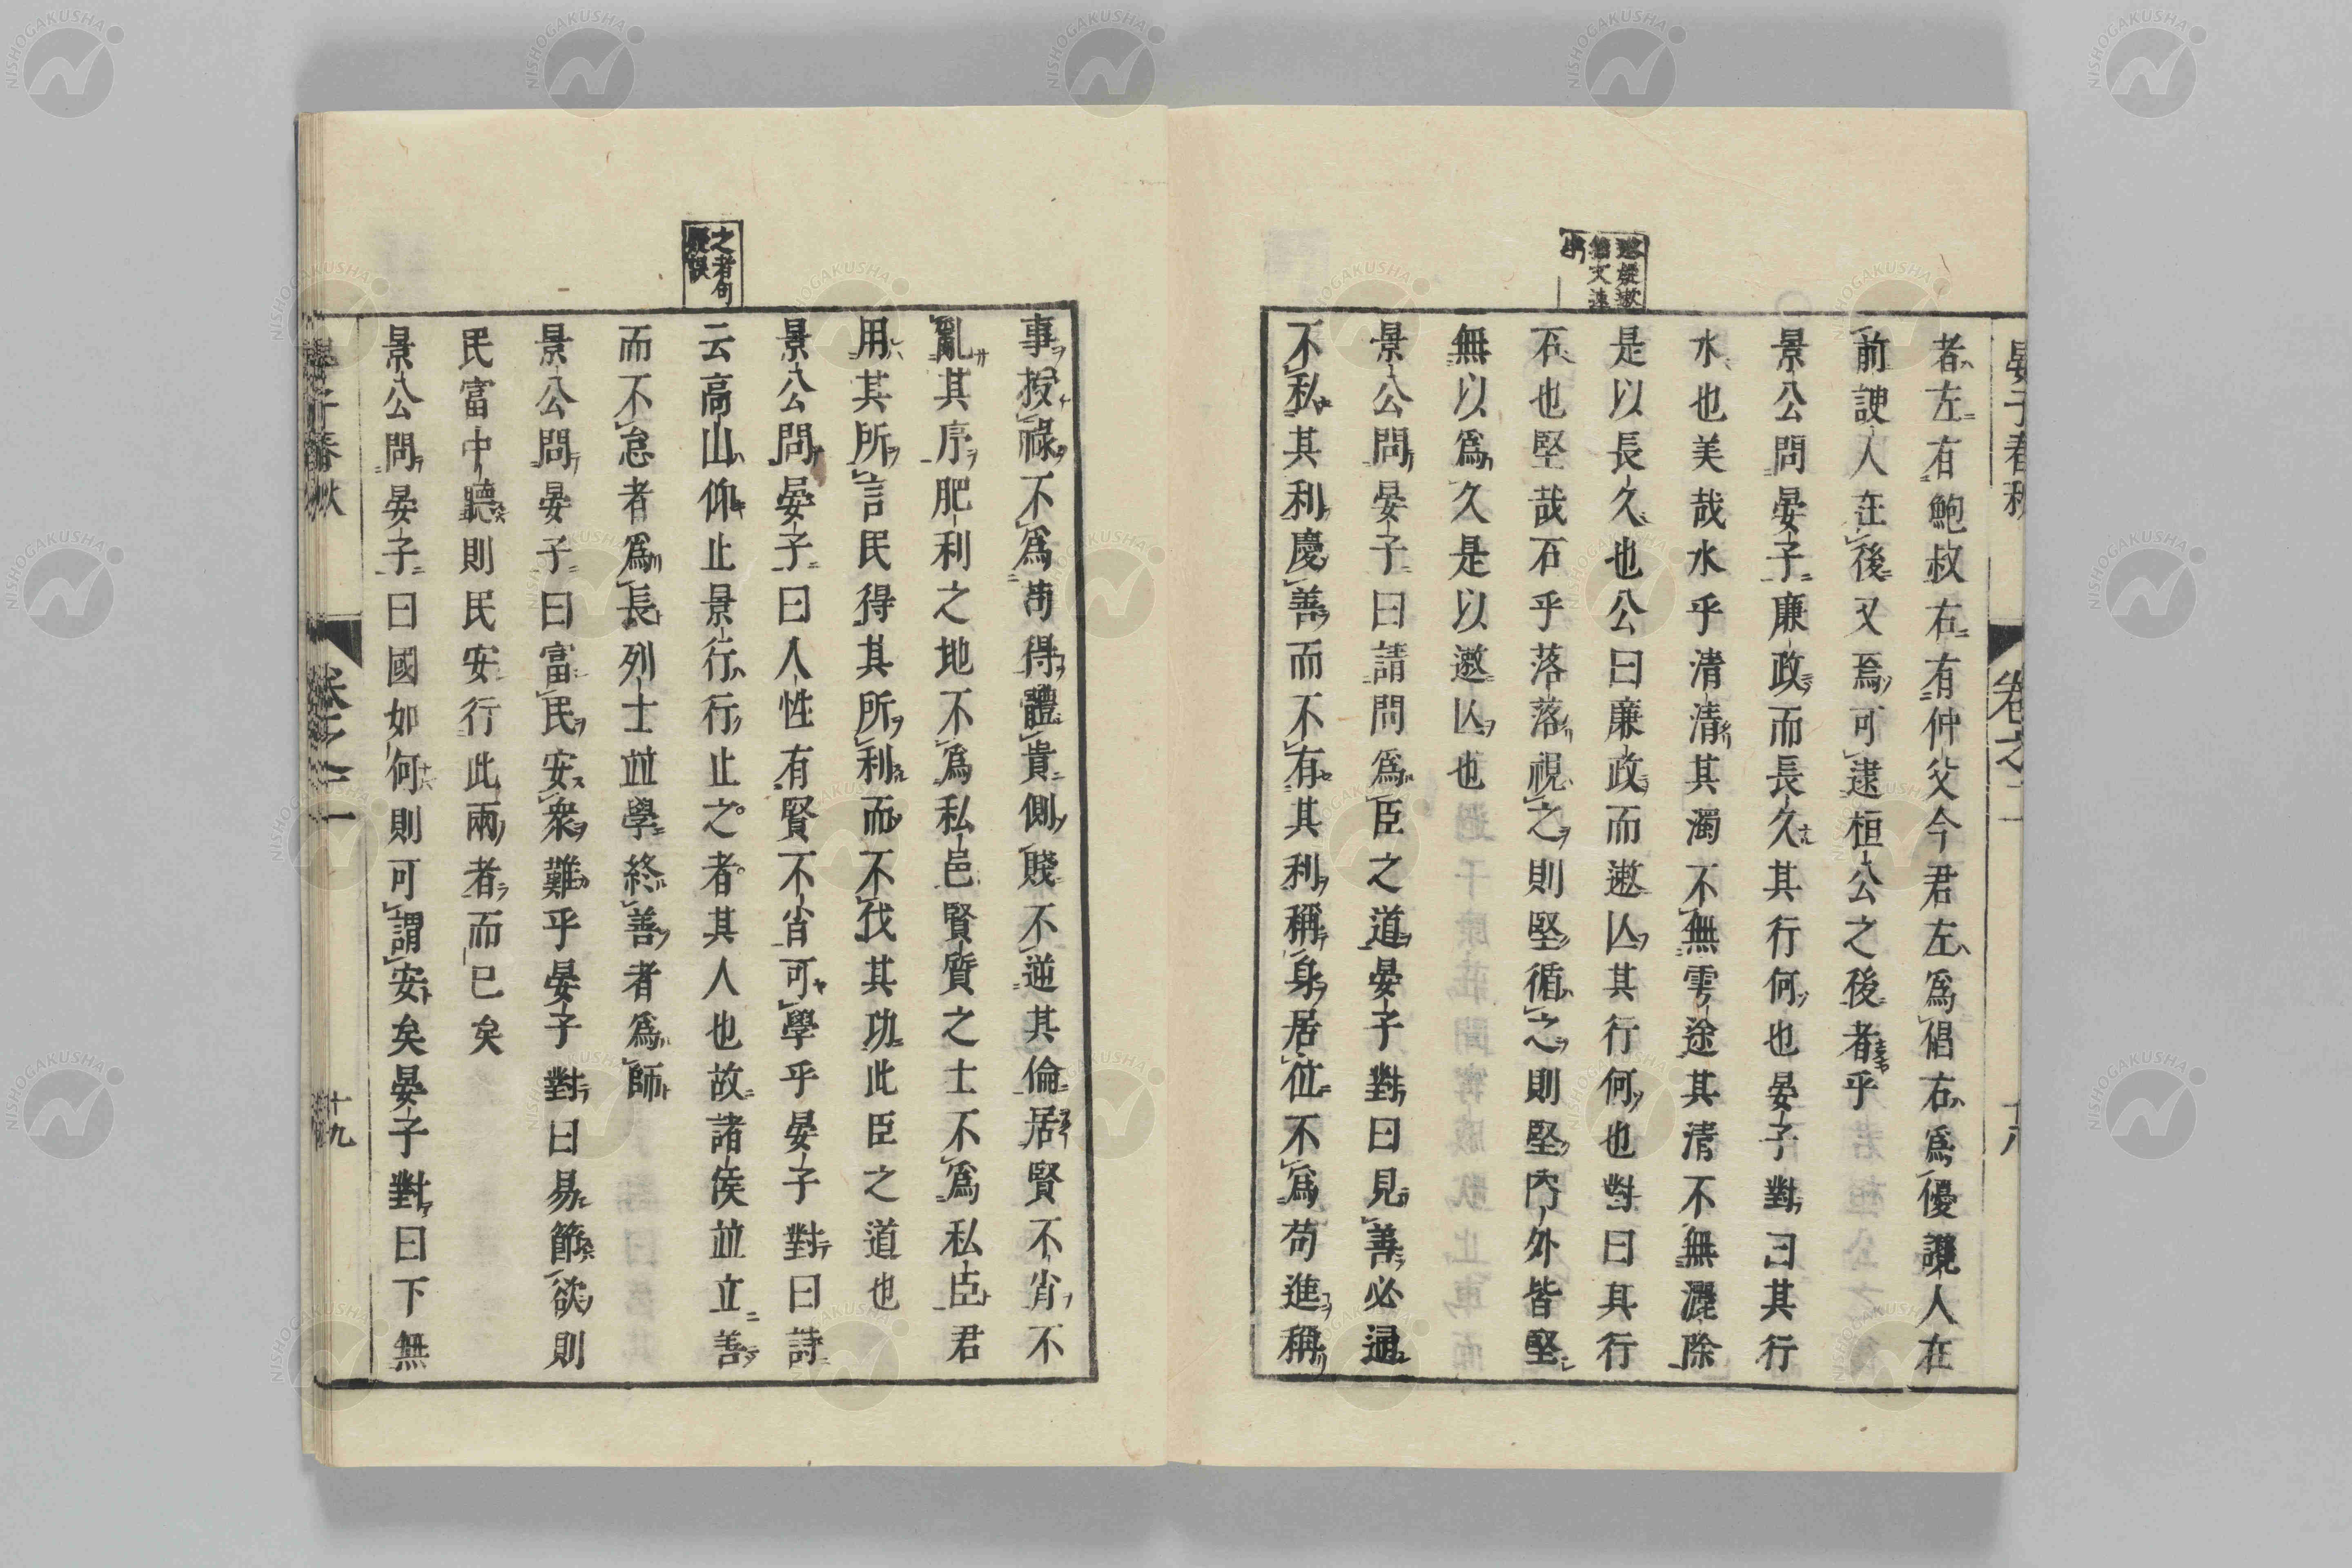 晏子春秋 卷之二 十八
者左右鮑叔右有仲父今君左爲倡右爲優讒人在
前諛人在後又焉可逮桓公之後者乎
景公問晏子廉政而長久其行何也晏子對曰其行
水也美哉水乎清清其濁不無雩途其清不無灑除
是以長久也公曰廉政而遬亾其行何也對曰其行
石也堅哉石乎落落視之則堅循之則堅內外皆堅
無以爲久是以遬亾也
景公問晏子曰請問爲臣之道晏子對曰見善必通
不私其利慶善而不有其利稱身居位不爲苟進稱
之者句
疑誤
事授祿不爲苟得體貴側賤不逆其倫居賢不肖不
亂其序肥利之地不爲私邑賢質之士不爲私臣君
用其所言民得其所利而不伐其功此臣之道也
景公問晏子曰人性有賢不肖可學乎晏子對曰詩
云高山仰止景行行止之者其人也故諸侯並立善
而不怠者爲長列士並學終善者爲師
景公問晏子曰富民安衆難乎晏子對曰易節欲則
民富中聽則民安行此兩者而已矣
景公問晏子曰國如何則可謂安矣晏子對曰下無
晏子春秋 卷之二 十九
NISHOGAKUSHA